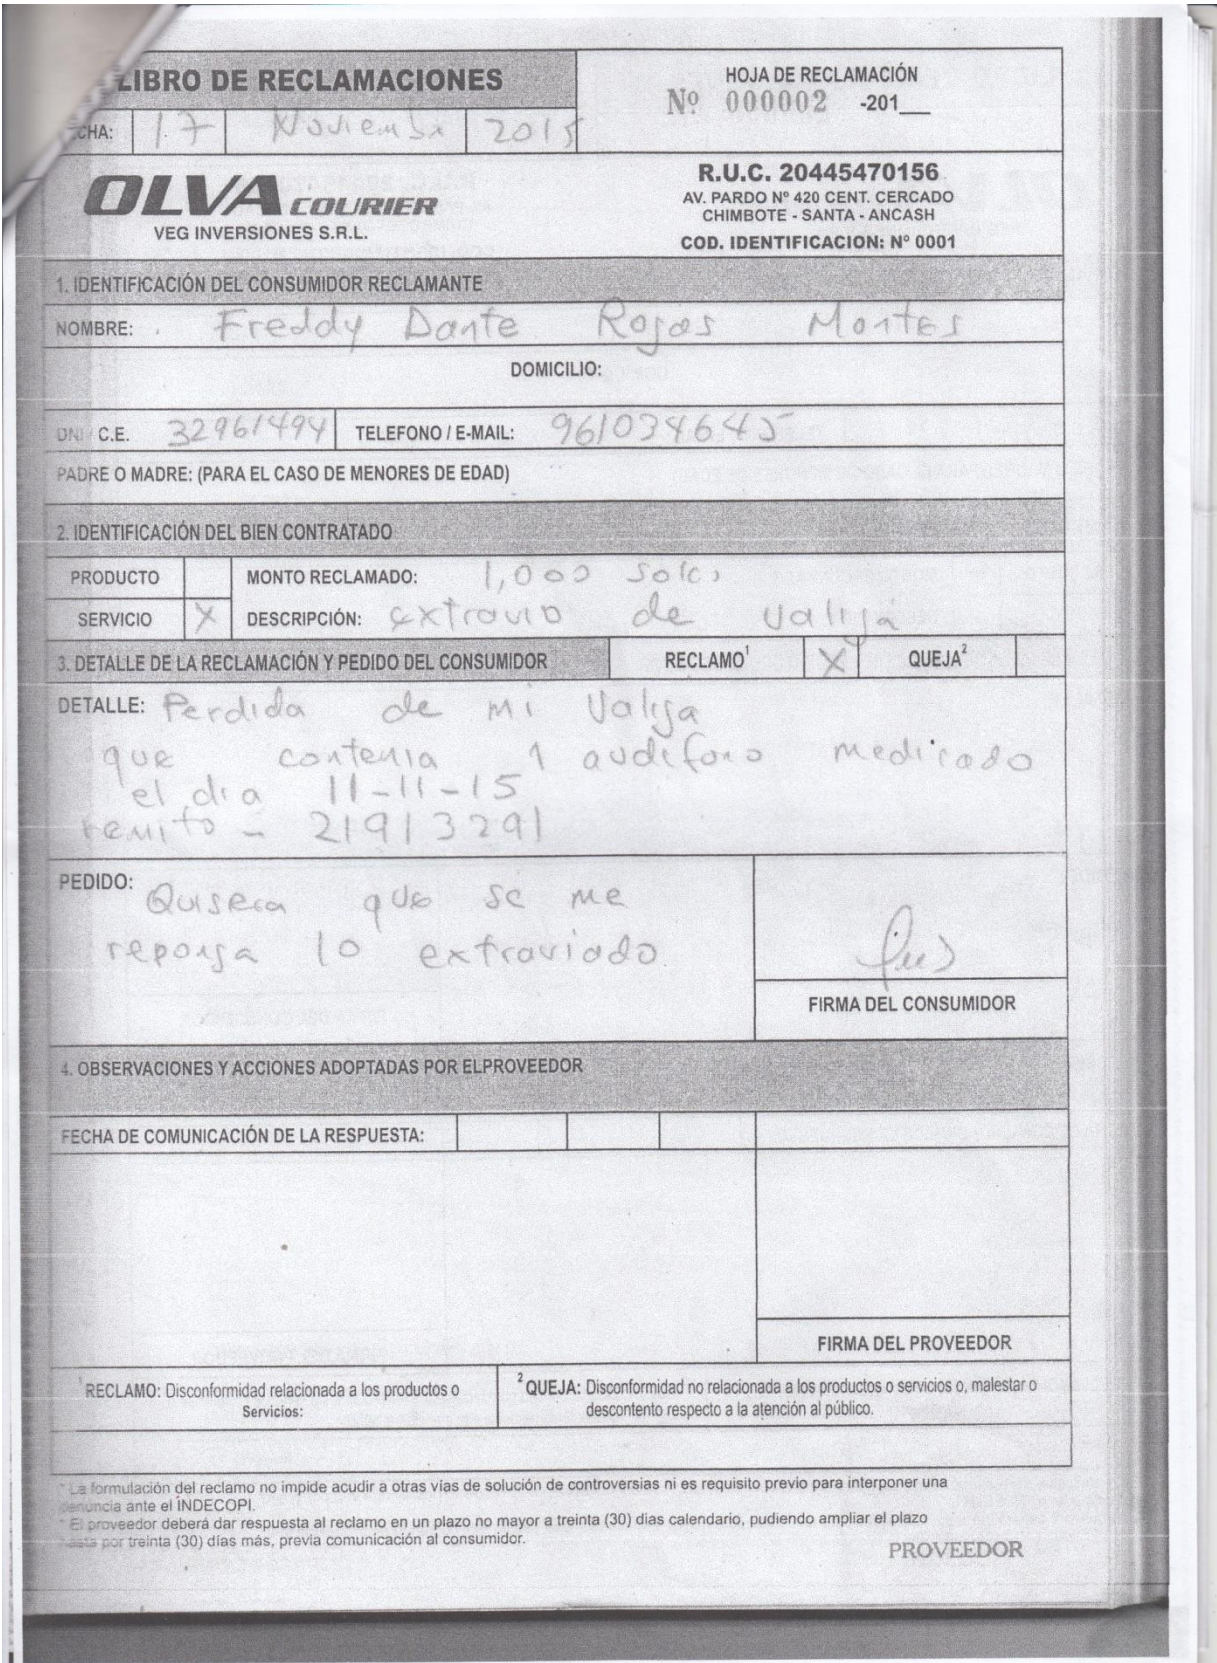 LIBRO DE RECLAMACIONES
HOJA DE RECLAMACIÓN
Nº 000002 -201__
FECHA: 17 Noviembre 2015
OLVA COURIER
VEG INVERSIONES S.R.L.
R.U.C. 20445470156
AV. PARDO Nº 420 CENT. CERCADO
CHIMBOTE - SANTA - ANCASH
COD. IDENTIFICACION: Nº 0001
1. IDENTIFICACIÓN DEL CONSUMIDOR RECLAMANTE
NOMBRE: Freddy Dante Rojas Montes
DOMICILIO:
DNI / C.E. 32961494 TELEFONO / E-MAIL: 961034645
PADRE O MADRE: (PARA EL CASO DE MENORES DE EDAD)
2. IDENTIFICACIÓN DEL BIEN CONTRATADO
PRODUCTO MONTO RECLAMADO: 1,000 soles
SERVICIO X DESCRIPCIÓN: extravio de valija
3. DETALLE DE LA RECLAMACIÓN Y PEDIDO DEL CONSUMIDOR RECLAMO¹ X QUEJA²
DETALLE: Perdida de mi Valija
que contenia 1 audifono medicado
el dia 11-11-15
remito - 21913291
PEDIDO: Quisera que se me
reponga lo extraviado
FIRMA DEL CONSUMIDOR
4. OBSERVACIONES Y ACCIONES ADOPTADAS POR ELPROVEEDOR
FECHA DE COMUNICACIÓN DE LA RESPUESTA:
FIRMA DEL PROVEEDOR
¹ RECLAMO: Disconformidad relacionada a los productos o
Servicios:
² QUEJA: Disconformidad no relacionada a los productos o servicios o, malestar o
descontento respecto a la atención al público.
* La formulación del reclamo no impide acudir a otras vías de solución de controversias ni es requisito previo para interponer una
denuncia ante el INDECOPI.
* El proveedor deberá dar respuesta al reclamo en un plazo no mayor a treinta (30) dias calendario, pudiendo ampliar el plazo
hasta por treinta (30) días más, previa comunicación al consumidor.
PROVEEDOR